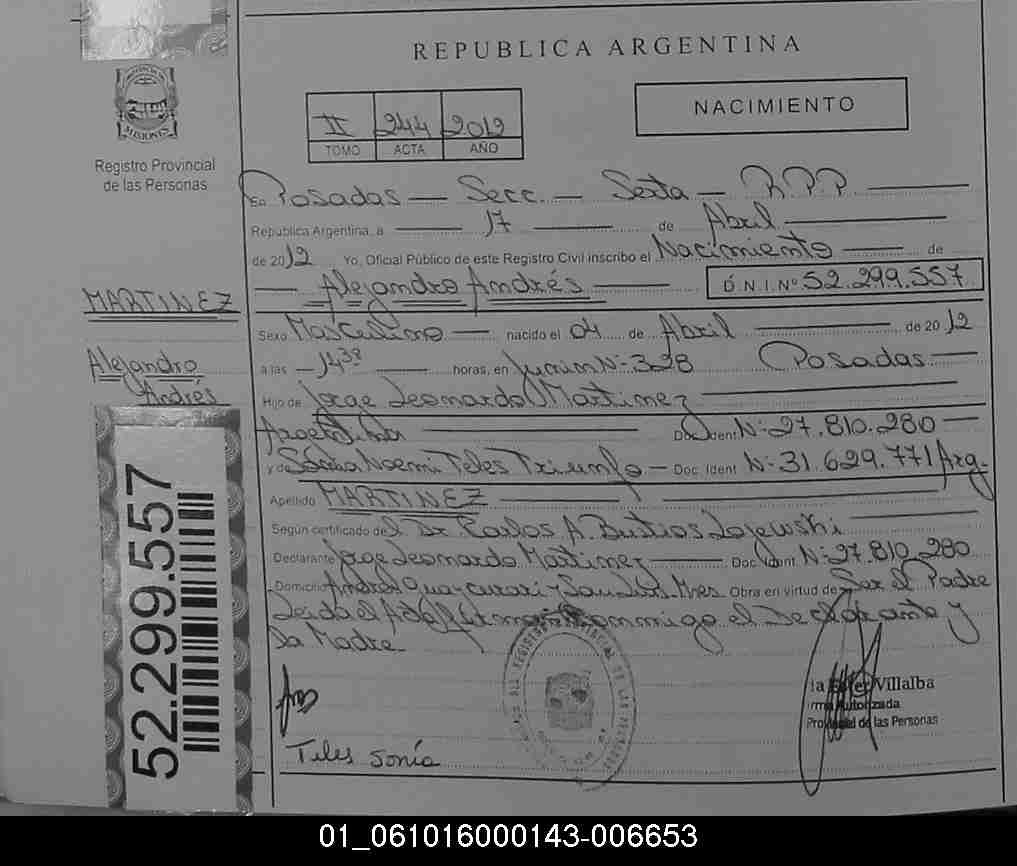 REPUBLICA ARGENTINA
NACIMIENTO
II 244 2012
TOMO ACTA AÑO
MISIONES
Registro Provincial
de las Personas
En Posadas — Secc. — Sexta — R.P.P.
Republica Argentina, a 17 de Abril
de 2012 Yo, Oficial Público de este Registro Civil inscribo el Nacimiento de
Alejandro Andrés D.N.I. Nº 52.299.557
MARTINEZ
Alejandro
Andrés
Sexo Masculino nacido el 04 de Abril de 2012
a las 14 38 horas, en Junin Nº 328 Posadas
Hijo de Jorge Leonardo Martinez
Argentina Doc. Ident. Nº 27.810.280
y de Sonia Noemi Teles Triunfo — Doc. Ident. Nº 31.629.771 Arg.
Apellido MARTINEZ
Según certificado del Dr. Carlos A. Bustios
Declarante Jorge Leonardo Martinez Doc. Ident. Nº 27.810.280
Domicilio Andres Guacurari San Mnes. Obra en virtud de Ser el Padre
Leida el Acta firman conmigo el Declarante y
La Madre
Villalba
Autorizada
Provincial de las Personas
Teles Sonía
52.299.557
01_061016000143-006653